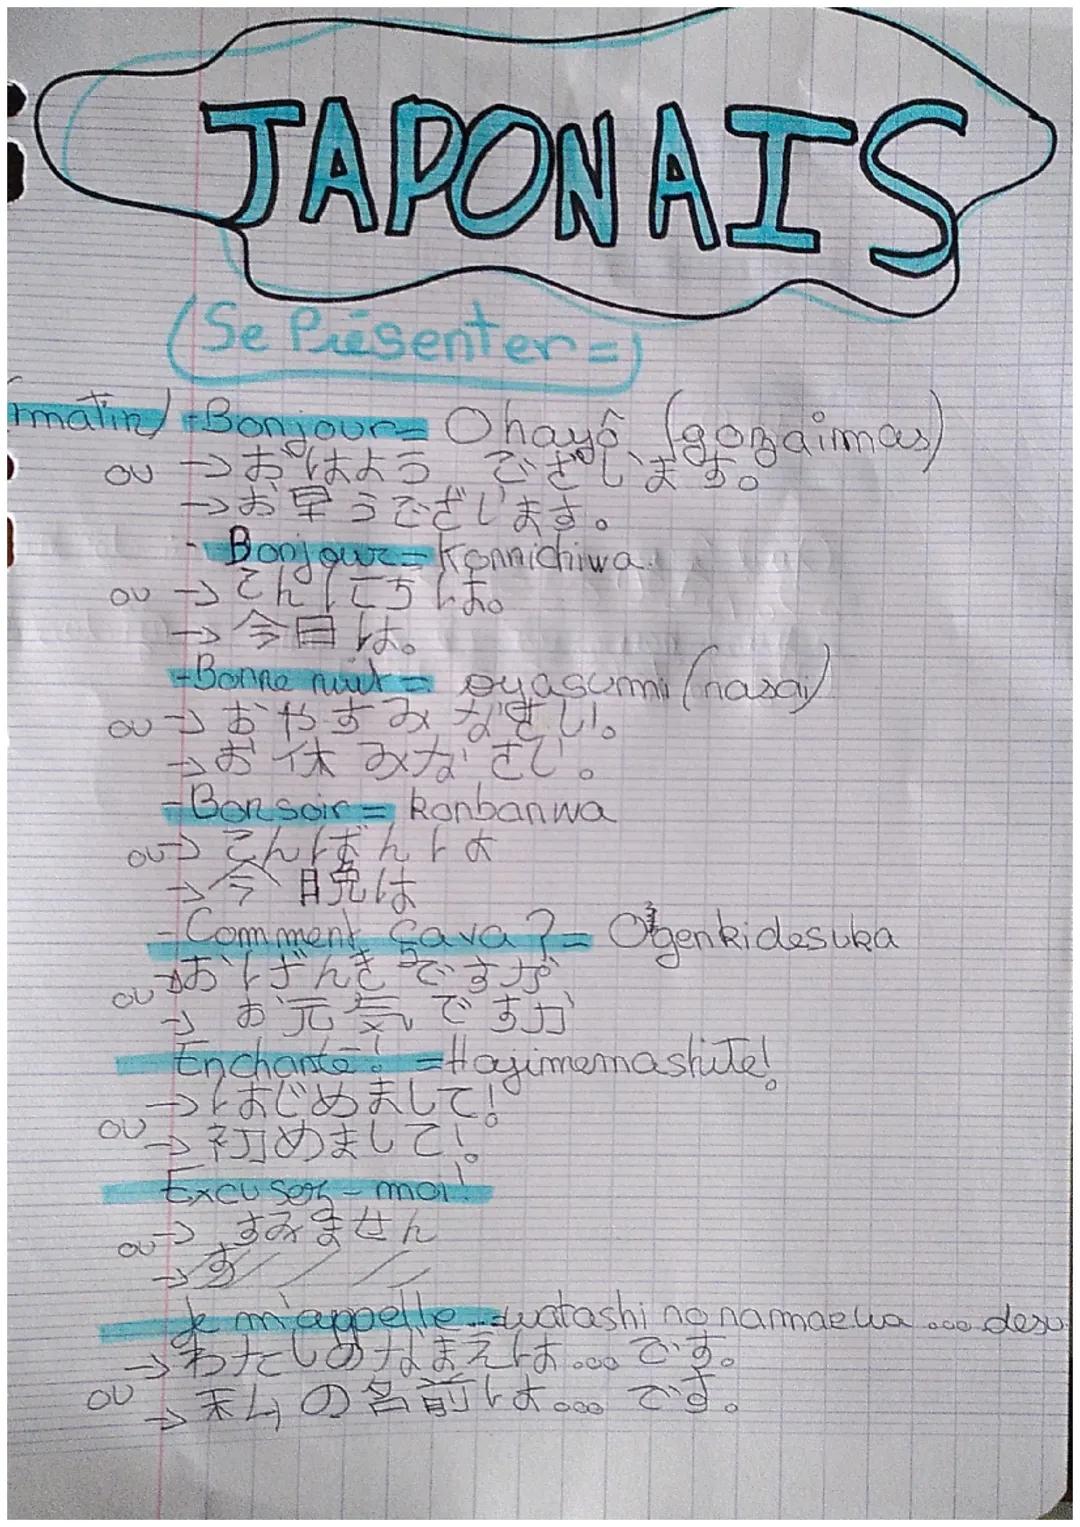 JAPONAIS
(Se Présenter=)
(matin) -Bonjour= Ohayô (gozaimas)
ou → おはよう ございます。
→お早うございます。
- Bonjour= Konnichiwa.
ou → こんにちは。
→ 今日は。
-Bonne nuit= oyasumi (nasai)
ou → おやすみ なさい。
→お休みなさい。
-Bonsoir= konbanwa
ou→ こんばんは
→ 今晩は
-Comment ça va ?= O'genkidesuka
ou →おげんきですか
→ お元気ですか
Enchanté! =Hajimemashite!
→はじめまして!
ou → 初めまして!
Excusez-moi!
ou → すみません
→す
Je m'appelle...=watashi no namaewa ... desu
→わたしのなまえは... です。
ou → 私の名前は... です。